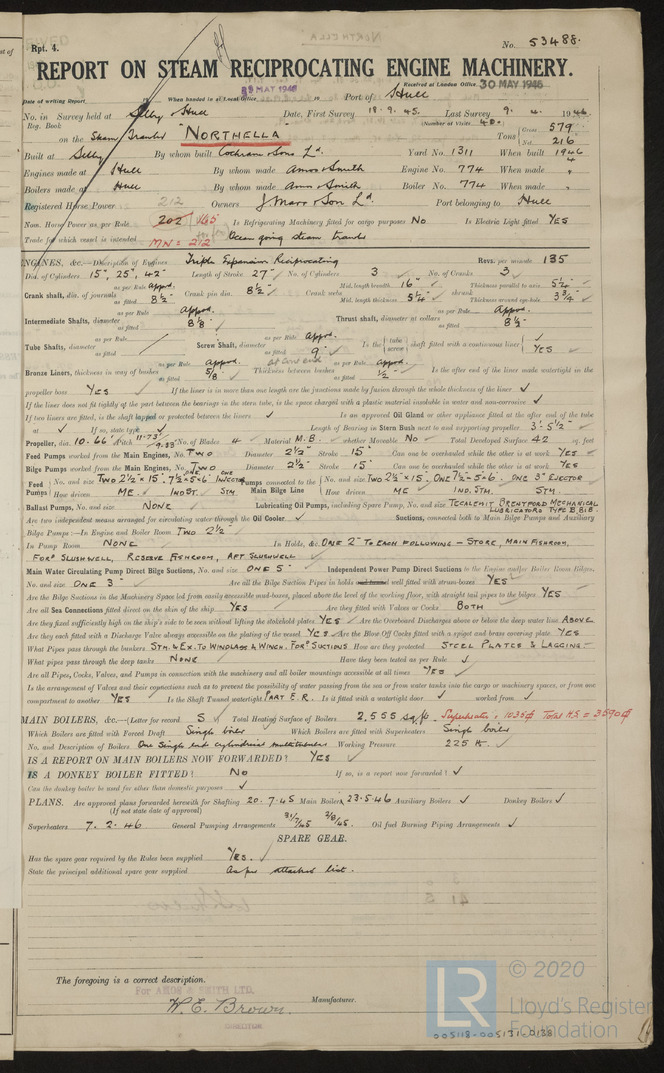 Rpt. 4.
No. 53488.
REPORT ON STEAM RECIPROCATING ENGINE MACHINERY.
Received at London Office 30 MAY 1946
Date of writing Report 19 When handed in at Local Office 19 Port of Hull
No. in Survey held at Selby & Hull Date, First Survey 18.9.45. Last Survey 9. 4. 1946
Reg. Book (Number of Visits 40.)
on the Steam Trawler "NORTHELLA" Tons Gross 579 Net 216
Built at Selby By whom built Cochrane & Sons Ld. Yard No. 1311 When built 1946
Engines made at Hull By whom made Amos & Smith Engine No. 774 When made "
Boilers made at Hull By whom made Amos & Smith Boiler No. 774 When made "
Registered Horse Power 212 Owners J Marr & Son Ld. Port belonging to Hull
Nom. Horse Power as per Rule 202 Is Refrigerating Machinery fitted for cargo purposes No Is Electric Light fitted YES
Trade for which vessel is intended MN = 212 Ocean going steam trawler
ENGINES, &c.—Description of Engines Triple Expansion Reciprocating Revs. per minute 135
Dia. of Cylinders 15", 25", 42" Length of Stroke 27" No. of Cylinders 3 No. of Cranks 3
Crank shaft, dia. of journals as per Rule Appd. as fitted 8½" Crank pin dia. 8½" Crank webs Mid. length breadth 16" Mid. length thickness 5¼" Thickness parallel to axis 5¼" shrunk Thickness around eye-hole 3¾"
Intermediate Shafts, diameter as per Rule Appd. as fitted 8⅛" Thrust shaft, diameter at collars as per Rule Appd. as fitted 8½"
Tube Shafts, diameter as per Rule as fitted Screw Shaft, diameter as per Rule Appd. as fitted 9" Is the tube screw shaft fitted with a continuous liner YES
Bronze Liners, thickness in way of bushes as per Rule Appd. as fitted 5/8" Thickness between bushes as per Rule Appd. as fitted ½" Is the after end of the liner made watertight in the
propeller boss YES If the liner is in more than one length are the junctions made by fusion through the whole thickness of the liner
If the liner does not fit tightly at the part between the bearings in the stern tube, is the space charged with a plastic material insoluble in water and non-corrosive
If two liners are fitted, is the shaft lapped or protected between the liners Is an approved Oil Gland or other appliance fitted at the after end of the tube
If so, state type Length of Bearing in Stern Bush next to and supporting propeller 3'-5½"
Propeller, dia. 10.66' Pitch No. of Blades 4 Material M.B. whether Moveable No Total Developed Surface 42 sq. feet
Feed Pumps worked from the Main Engines, No. TWO Diameter 2½" Stroke 15" Can one be overhauled while the other is at work YES
Bilge Pumps worked from the Main Engines, No. TWO Diameter 2½" Stroke 15" Can one be overhauled while the other is at work YES
Feed Pumps No. and size TWO 2½" × 15", ONE 7½ × 5 × 6 ONE INJECTOR Pumps connected to the Main Bilge Line No. and size TWO 2½" × 15", ONE 7½ × 5 × 6, ONE 3" EJECTOR
How driven M.E. IND. ST. STM How driven ME IND. STM. STM.
Ballast Pumps, No. and size NONE Lubricating Oil Pumps, including Spare Pump, No. and size TECALEMIT BRENTFORD MECHANICAL LUBRICATORS TYPE B.B.I.B.
Are two independent means arranged for circulating water through the Oil Cooler Suctions, connected both to Main Bilge Pumps and Auxiliary
Bilge Pumps:—In Engine and Boiler Room TWO 2½"
In Pump Room NONE In Holds, &c. ONE 2" TO EACH FOLLOWING - STORE, MAIN FISHROOM,
FORD SLUSHWELL, RESERVE FISHROOM, AFT SLUSHWELL
Main Water Circulating Pump Direct Bilge Suctions, No. and size ONE 5" Independent Power Pump Direct Suctions to the Engine and/or Boiler Room Bilges,
No. and size ONE 3" Are all the Bilge Suction Pipes in holds well fitted with strum-boxes YES
Are the Bilge Suctions in the Machinery Space led from easily accessible mud-boxes, placed above the level of the working floor, with straight tail pipes to the bilges YES
Are all Sea Connections fitted direct on the skin of the ship YES Are they fitted with Valves or Cocks BOTH
Are they fixed sufficiently high on the ship's side to be seen without lifting the stokehold plates YES Are the Overboard Discharges above or below the deep water line ABOVE
Are they each fitted with a Discharge Valve always accessible on the plating of the vessel YES Are the Blow Off Cocks fitted with a spigot and brass covering plate YES
What Pipes pass through the bunkers STM. & EX. TO WINDLASS & WINCH. FORD SUCTIONS How are they protected STEEL PLATES & LAGGING
What pipes pass through the deep tanks NONE Have they been tested as per Rule
Are all Pipes, Cocks, Valves, and Pumps in connection with the machinery and all boiler mountings accessible at all times YES
Is the arrangement of Valves and their connections such as to prevent the possibility of water passing from the sea or from water tanks into the cargo or machinery spaces, or from one
compartment to another YES Is the Shaft Tunnel watertight PART E.R. Is it fitted with a watertight door worked from
MAIN BOILERS, &c.—(Letter for record S Total Heating Surface of Boilers 2,555 sq.ft. Superheater = 1035 Total H.S = 3590
Which Boilers are fitted with Forced Draft Single boiler Which Boilers are fitted with Superheaters Single boiler
No. and Description of Boilers One Single end cylindrical multitubular Working Pressure 225 lb.
IS A REPORT ON MAIN BOILERS NOW FORWARDED? YES
IS A DONKEY BOILER FITTED? No If so, is a report now forwarded?
Can the donkey boiler be used for other than domestic purposes
PLANS. Are approved plans forwarded herewith for Shafting 20.7.45 Main Boilers 23.5.46 Auxiliary Boilers Donkey Boilers
(If not state date of approval)
Superheaters 7.2.46 General Pumping Arrangements 31/7/45 2/8/45. Oil fuel Burning Piping Arrangements
SPARE GEAR.
Has the spare gear required by the Rules been supplied Yes.
State the principal additional spare gear supplied As per attached list.
The foregoing is a correct description.
For AMOS & SMITH LTD.
W. E. Brown. Manufacturer.
LR © 2020
Lloyd's Register
Foundation
005118-005131-0138